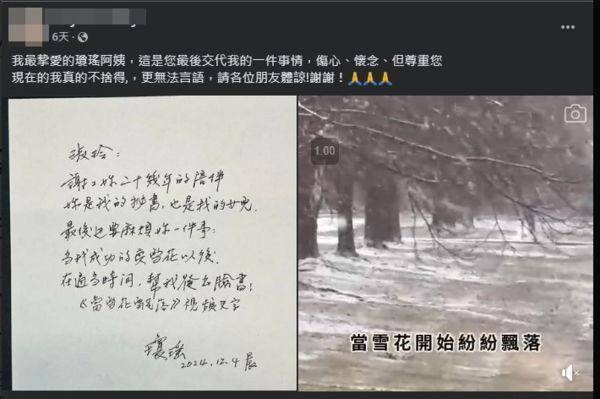 6天
我最摯愛的瓊瑤阿姨，這是您最後交代我的一件事情，傷心、懷念、但尊重您
現在的我真的不捨得,，更無法言語，請各位朋友體諒!謝謝！🙏🙏🙏
淑玲：
謝謝妳二十幾年的陪伴
妳是我的秘書，也是我的女兒。
最後還要麻煩妳一件事：
當我成功的變雪花以後，
在適當時間，幫我發去臉書：
《當雪花飄落》視頻文字
瓊瑤
2024.12.4晨
1.00
當雪花開始紛紛飄落